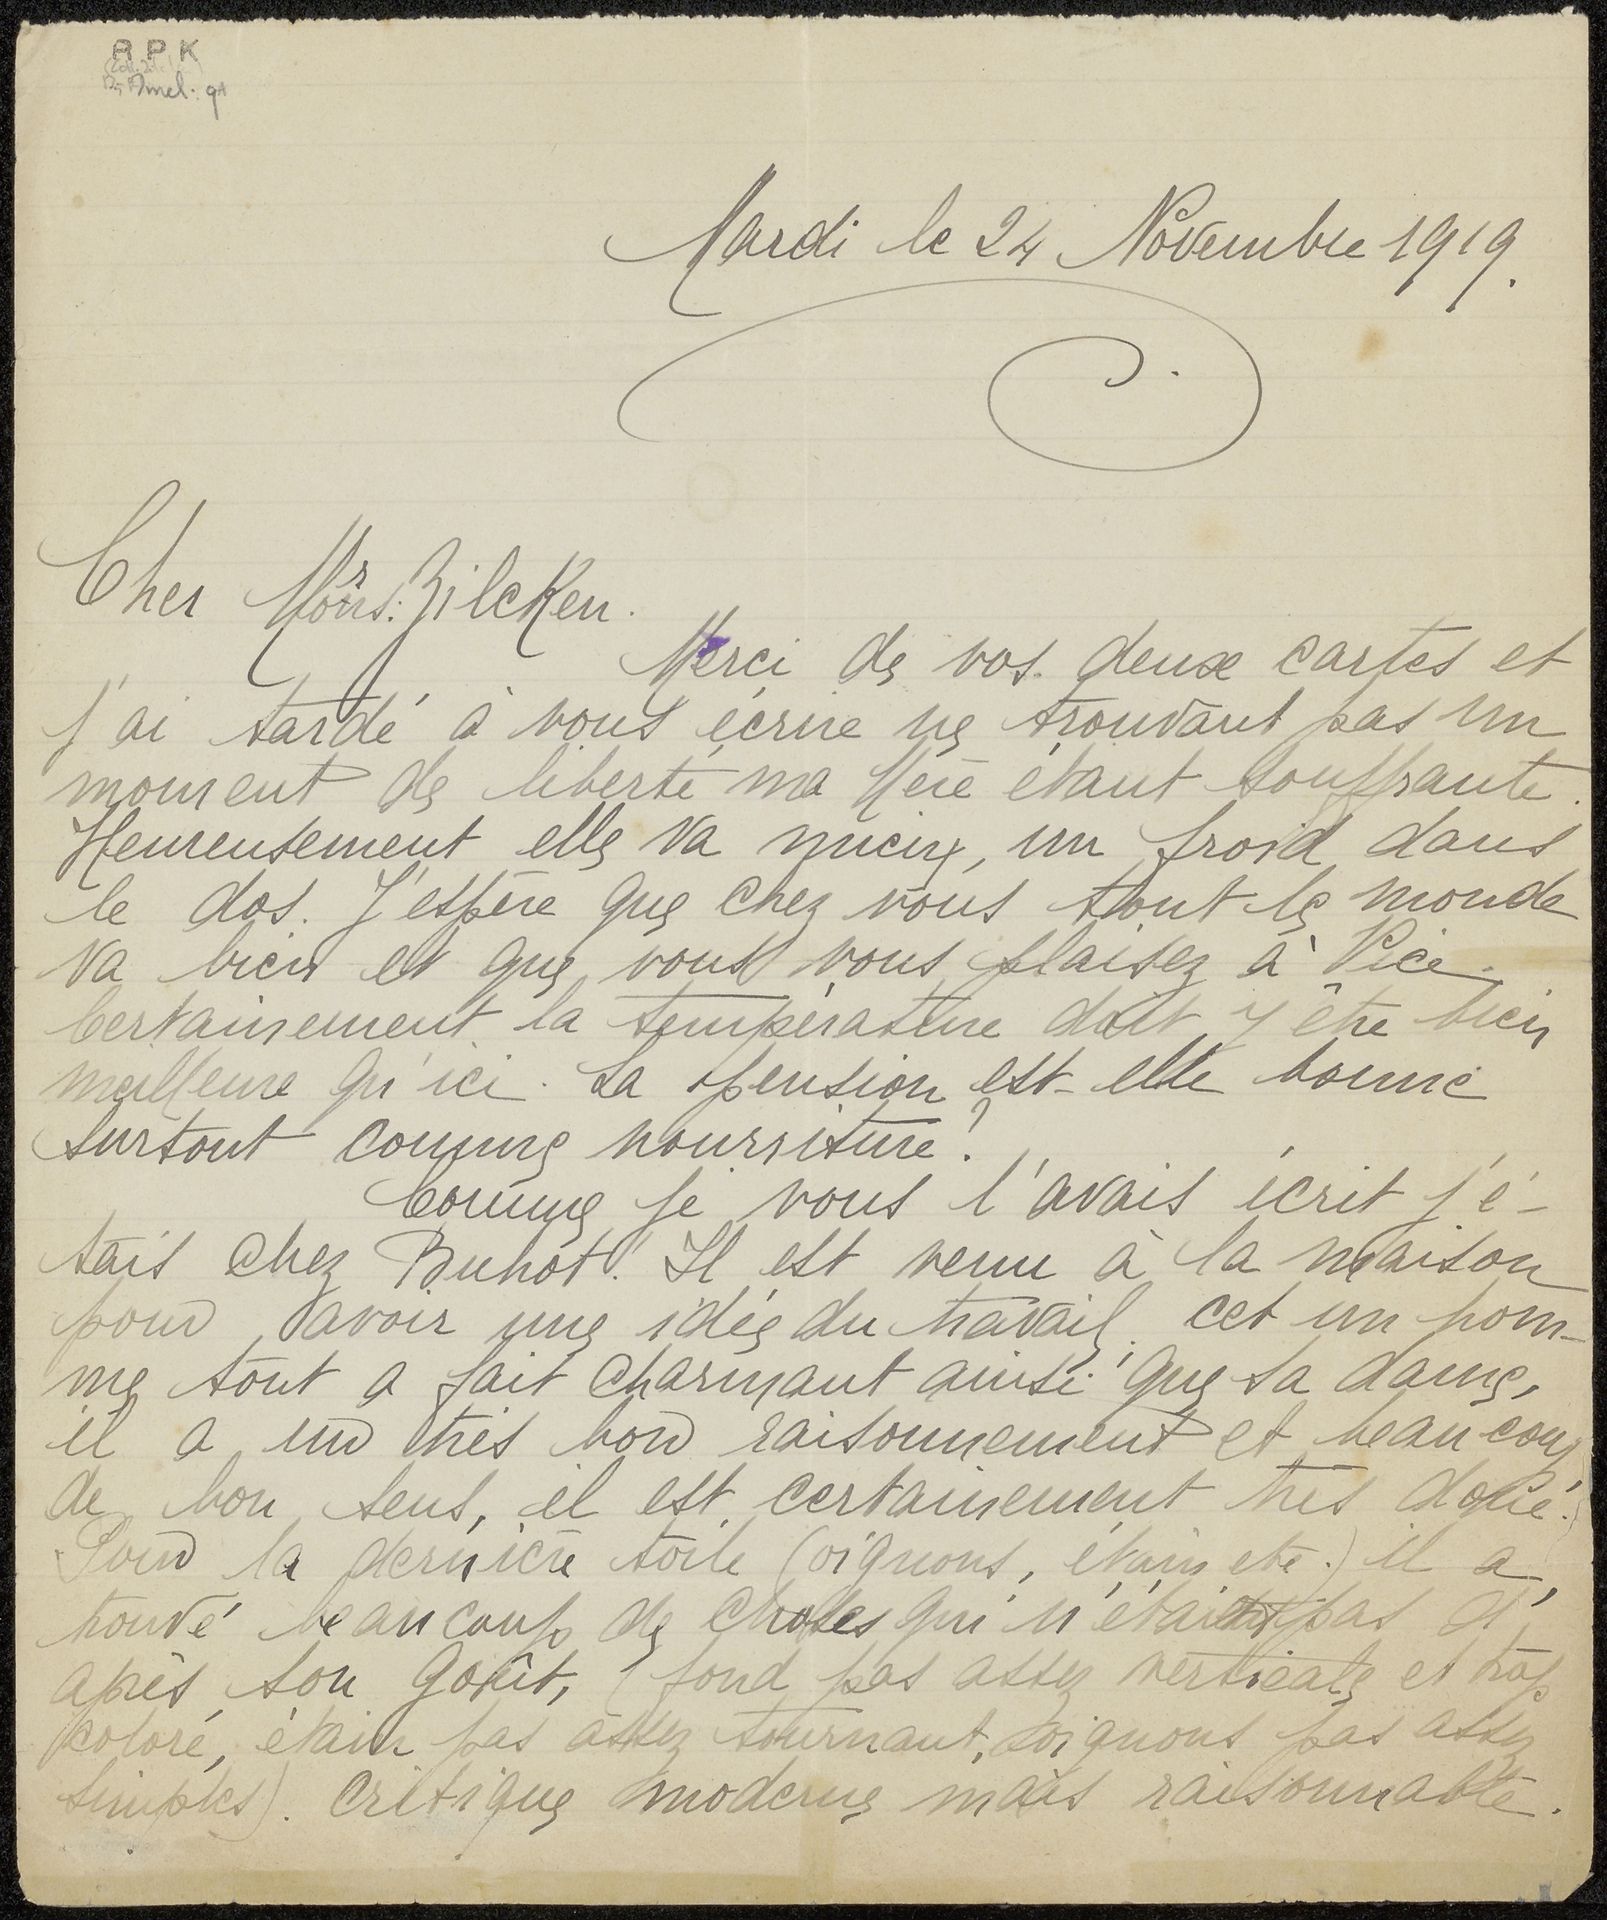 R P K
Mardi le 24 Novembre 1919.
Cher Monsr. Zilcken.
Merci de vos deux cartes et
j'ai tardé à vous écrire ne trouvant pas un
moment de liberté ma Mère étant souffrante.
Heureusement elle va mieux, un froid dans
le dos. J'espère que chez vous tout le monde
va bien et que vous vous plaisez à Nice.
Certainement la température doit y être bien
meilleure qu'ici. La pension est-elle bonne
surtout comme nourriture?
Comme je vous l'avais écrit j'é-
tais chez Buhot. Il est venu à la maison
pour avoir une idée du travail. cet un hom-
me tout a fait charmant ainsi que sa dame,
il a un très bon raisonnement et beaucoup
de bon sens, il est certainement très doué.
Pour la dernière toile (oignons, étain etc.) il a
trouvé beaucoup de choses qui n'étaient pas d'
après son goût, (fond pas assez verticale et trop
coloré, étain pas assez tournant, oignons pas assez
simples). Critique moderne mais raisonnable.